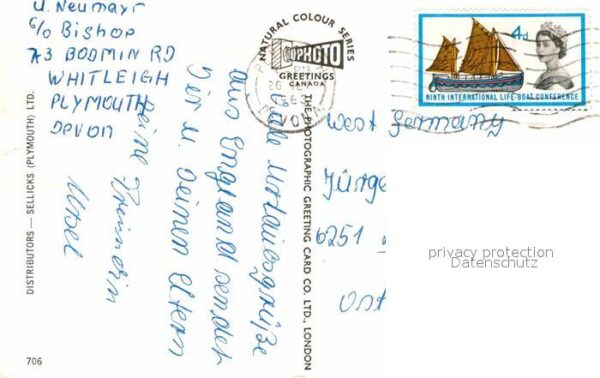 U. Neumayr
c/o Bishop
73 BODMIN RD
WHITLEIGH
PLYMOUTH
DEVON
Liebe Urlaubsgrüße
aus England sendet
Dir u. Deinen Eltern
Deine Freundin
Ursel
NATURAL COLOUR SERIES
GREETINGS
CANADA
THE PHOTOGRAPHIC GREETING CARD CO. LTD., LONDON
DISTRIBUTORS — SELLICKS (PLYMOUTH) LTD.
706
4d
NINTH INTERNATIONAL LIFE-BOAT CONFERENCE
West Germany
Jürge
6251
Ost
privacy protection
Datenschutz